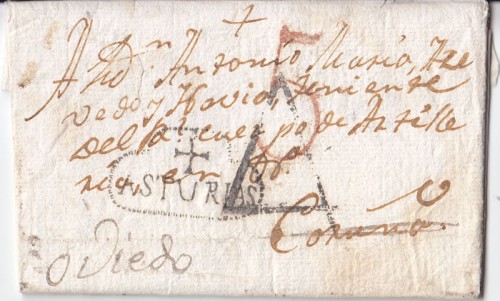 +
5
A Dn Antonio Maria Aze
vedo y Havia, teniente
del Rl cuerpo de Artille
ria, en
ASTURIAS
Coruña.
oviedo